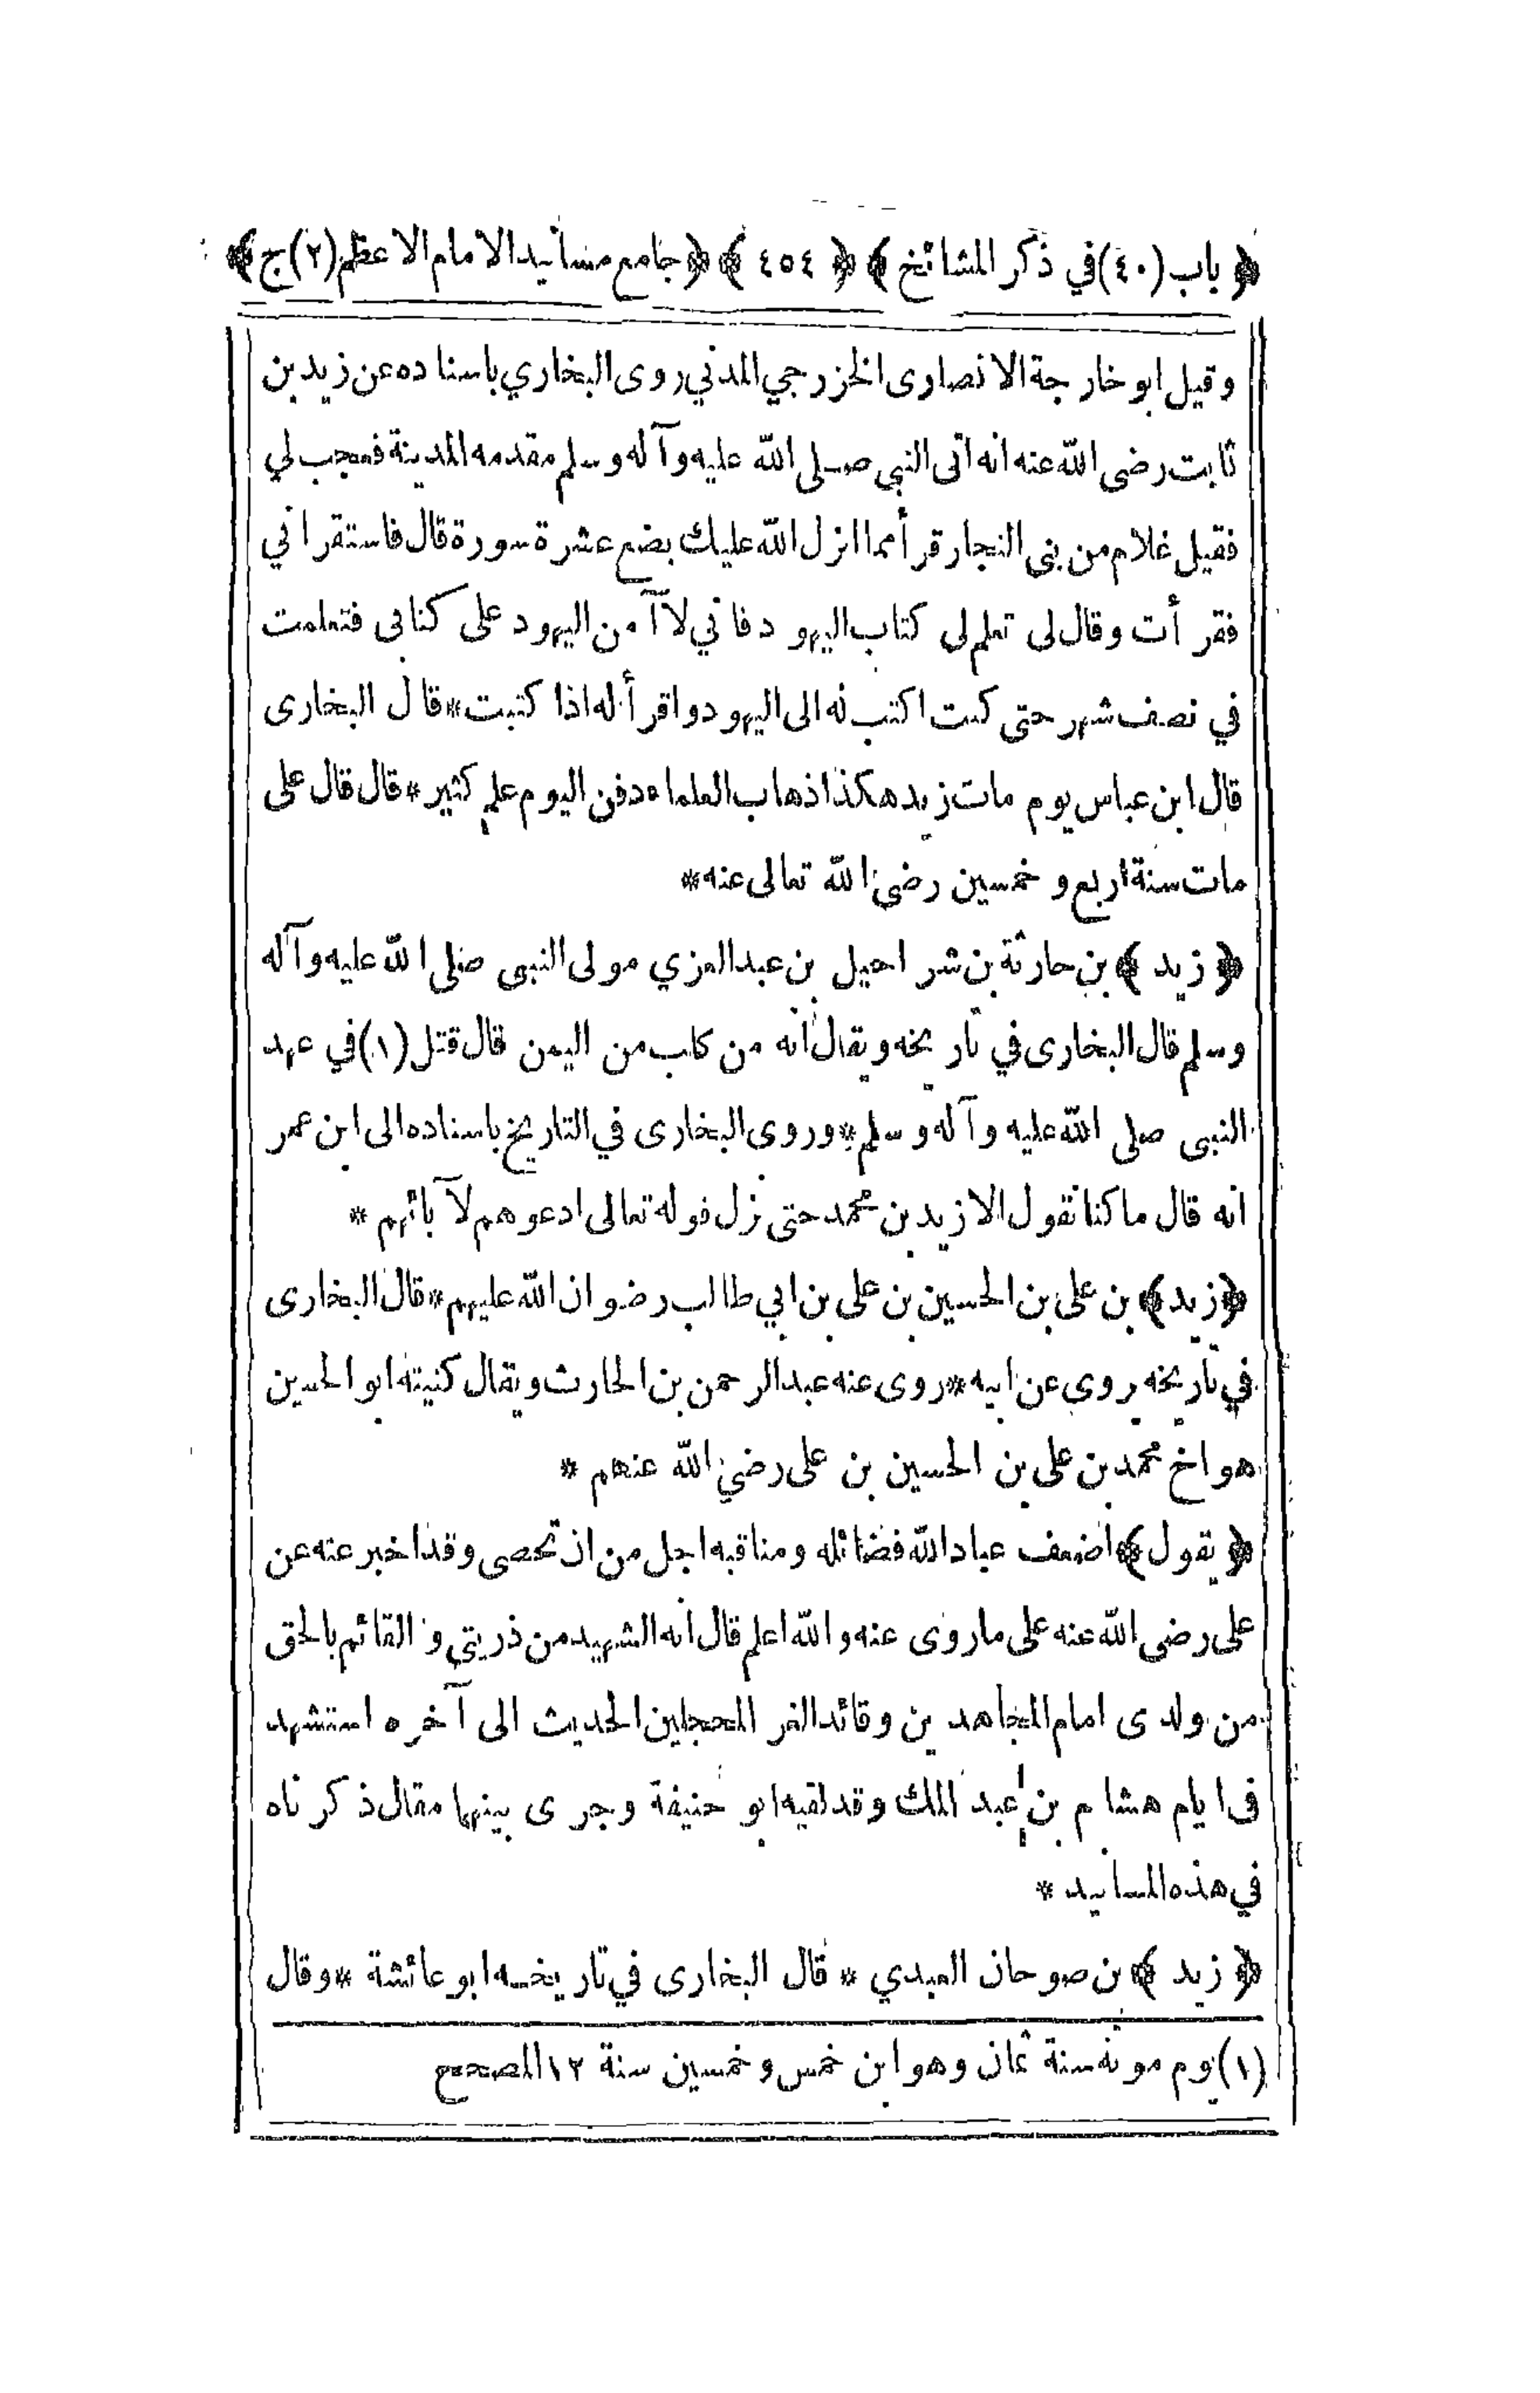 ﴿ باب (٤٠) في ذكر المشائخ ﴾ ﴿ ٤٥٤ ﴾ ﴿ جامع مسانيد الامام الاعظم (٢) ج ﴾
وقيل ابو خارجة الانصارى الخزرجي المدني روى البخاري باسناده عن زيد بن
ثابت رضى الله عنه انه اتى النبي صلى الله عليه وآله وسلم مقدمه المدينة فعجب لي
فقيل غلام من بنى النجار قرأ مما انزل الله عليك بضع عشرة سورة قال فاستقرأني
فقرأت وقال لى تعلم لى كتاب اليهود فاني لا آمن اليهود على كتابى فتعلمت
في نصف شهر حتى كنت اكتب له الى اليهود واقرأ له اذا كتبت * قال البخارى
قال ابن عباس يوم مات زيد هكذا ذهاب العلماء دفن اليوم علم كثير * قال قال على
مات سنة اربع و خمسين رضى الله تعالى عنه *
﴿ زيد ﴾ بن حارثة بن شراحيل بن عبد العزي مولى النبى صلى الله عليه وآله
وسلم قال البخارى في تاريخه ويقال انه من كلب من اليمن قال قتل (١) في عهد
النبى صلى الله عليه وآله وسلم * وروى البخارى في التاريخ باسناده الى ابن عمر
انه قال ما كنا نقول الا زيد بن محمد حتى نزل قوله تعالى ادعوهم لآبائهم *
﴿ زيد ﴾ بن على بن الحسين بن على بن ابي طالب رضوان الله عليهم * قال البخارى
في تاريخه روى عن ابيه * روى عنه عبد الرحمن بن الحارث ويقال كنيته ابو الحسين
هو اخ محمد بن على بن الحسين بن على رضي الله عنهم *
﴿ يقول ﴾ اضعف عباد الله فضائله ومناقبه اجل من ان تحصى وقد اخبر عنه عن
على رضى الله عنه على ما روى عنه و الله اعلم قال انه الشهيد من ذريتي و القائم بالحق
من ولدى امام المجاهدين وقائد الغر المحجلين الحديث الى آخره استشهد
فى ايام هشام بن عبد الملك وقد لقيه ابو حنيفة وجرى بينهما مقال ذكرناه
في هذه المسانيد *
﴿ زيد ﴾ بن صوحان العبدي * قال البخارى في تاريخه ابو عائشة * وقال
(١) يوم موته سنة ثمان وهو ابن خمس و خمسين سنة ١٢ المصحح